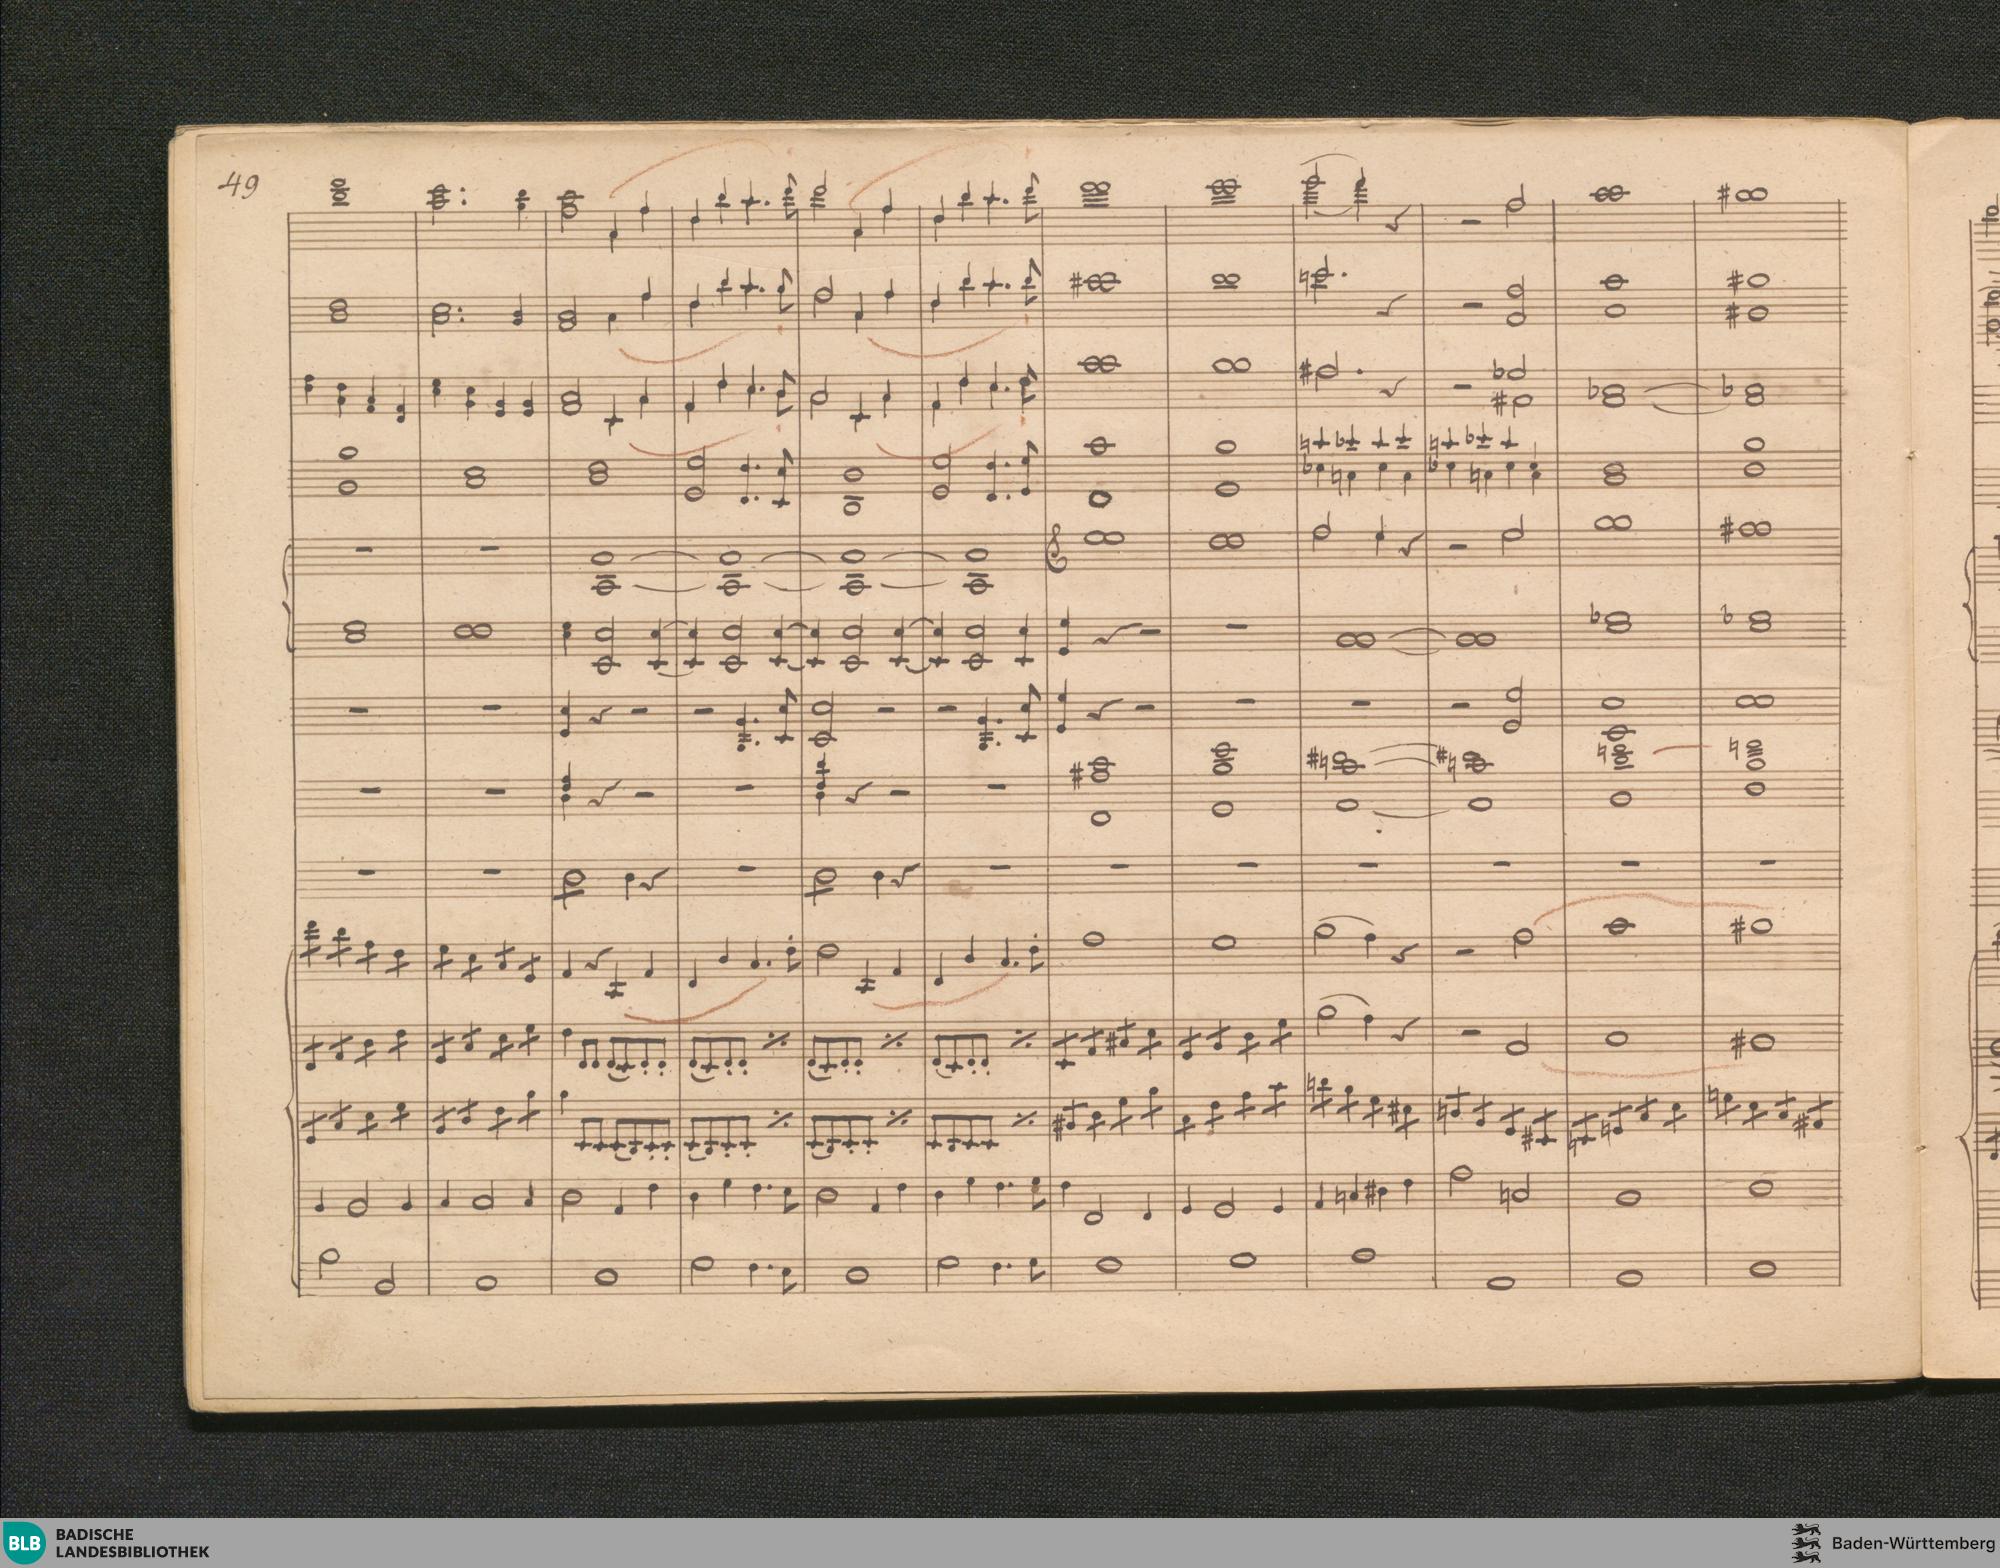 49
BLB
BADISCHE
LANDESBIBLIOTHEK
Baden-Württemberg